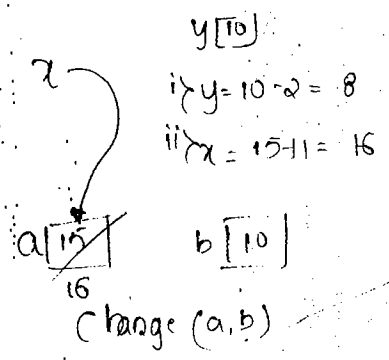 y[10]
x
i> y = 10 - 2 = 8
ii> x = 15+1 = 16
a[15]
b[10]
16
Change (a,b)